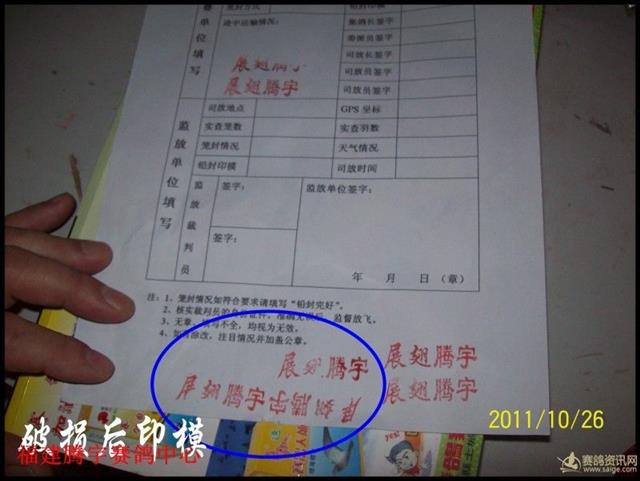 赛单位填写
笼封方式
集鸽长签字
途中运输情况：
委派员签字
司放长签字
司放员签字
司放员签字
展翅腾宇
展翅腾宇
监放单位填写
司放地点
GPS 坐标
实查笼数
实查羽数
笼封情况
天气情况
铅封印模
司放时间
监放裁判员
签字：
监放单位签字：
签字：
年 月 日（章）
注：1、笼封情况如符合要求请填写“铅封完好”。
2、核实裁判员的身份证件，准确无误后，监督放飞。
3、无章、填写不全，均视为无效。
4、如有涂改，注目情况并加盖公章。
展翅腾宇
展翅腾宇
展翅腾宇
展翅腾宇
展翅腾宇
2011/10/26
破损后印模
福建腾宇赛鸽中心
赛鸽资讯网
www.saige.com